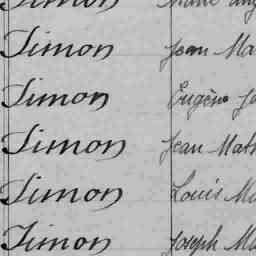 Simon
Simon Jean Ma
Simon Eugène Jo
Simon Jean Math
Simon Louis Ma
Simon Joseph Ma